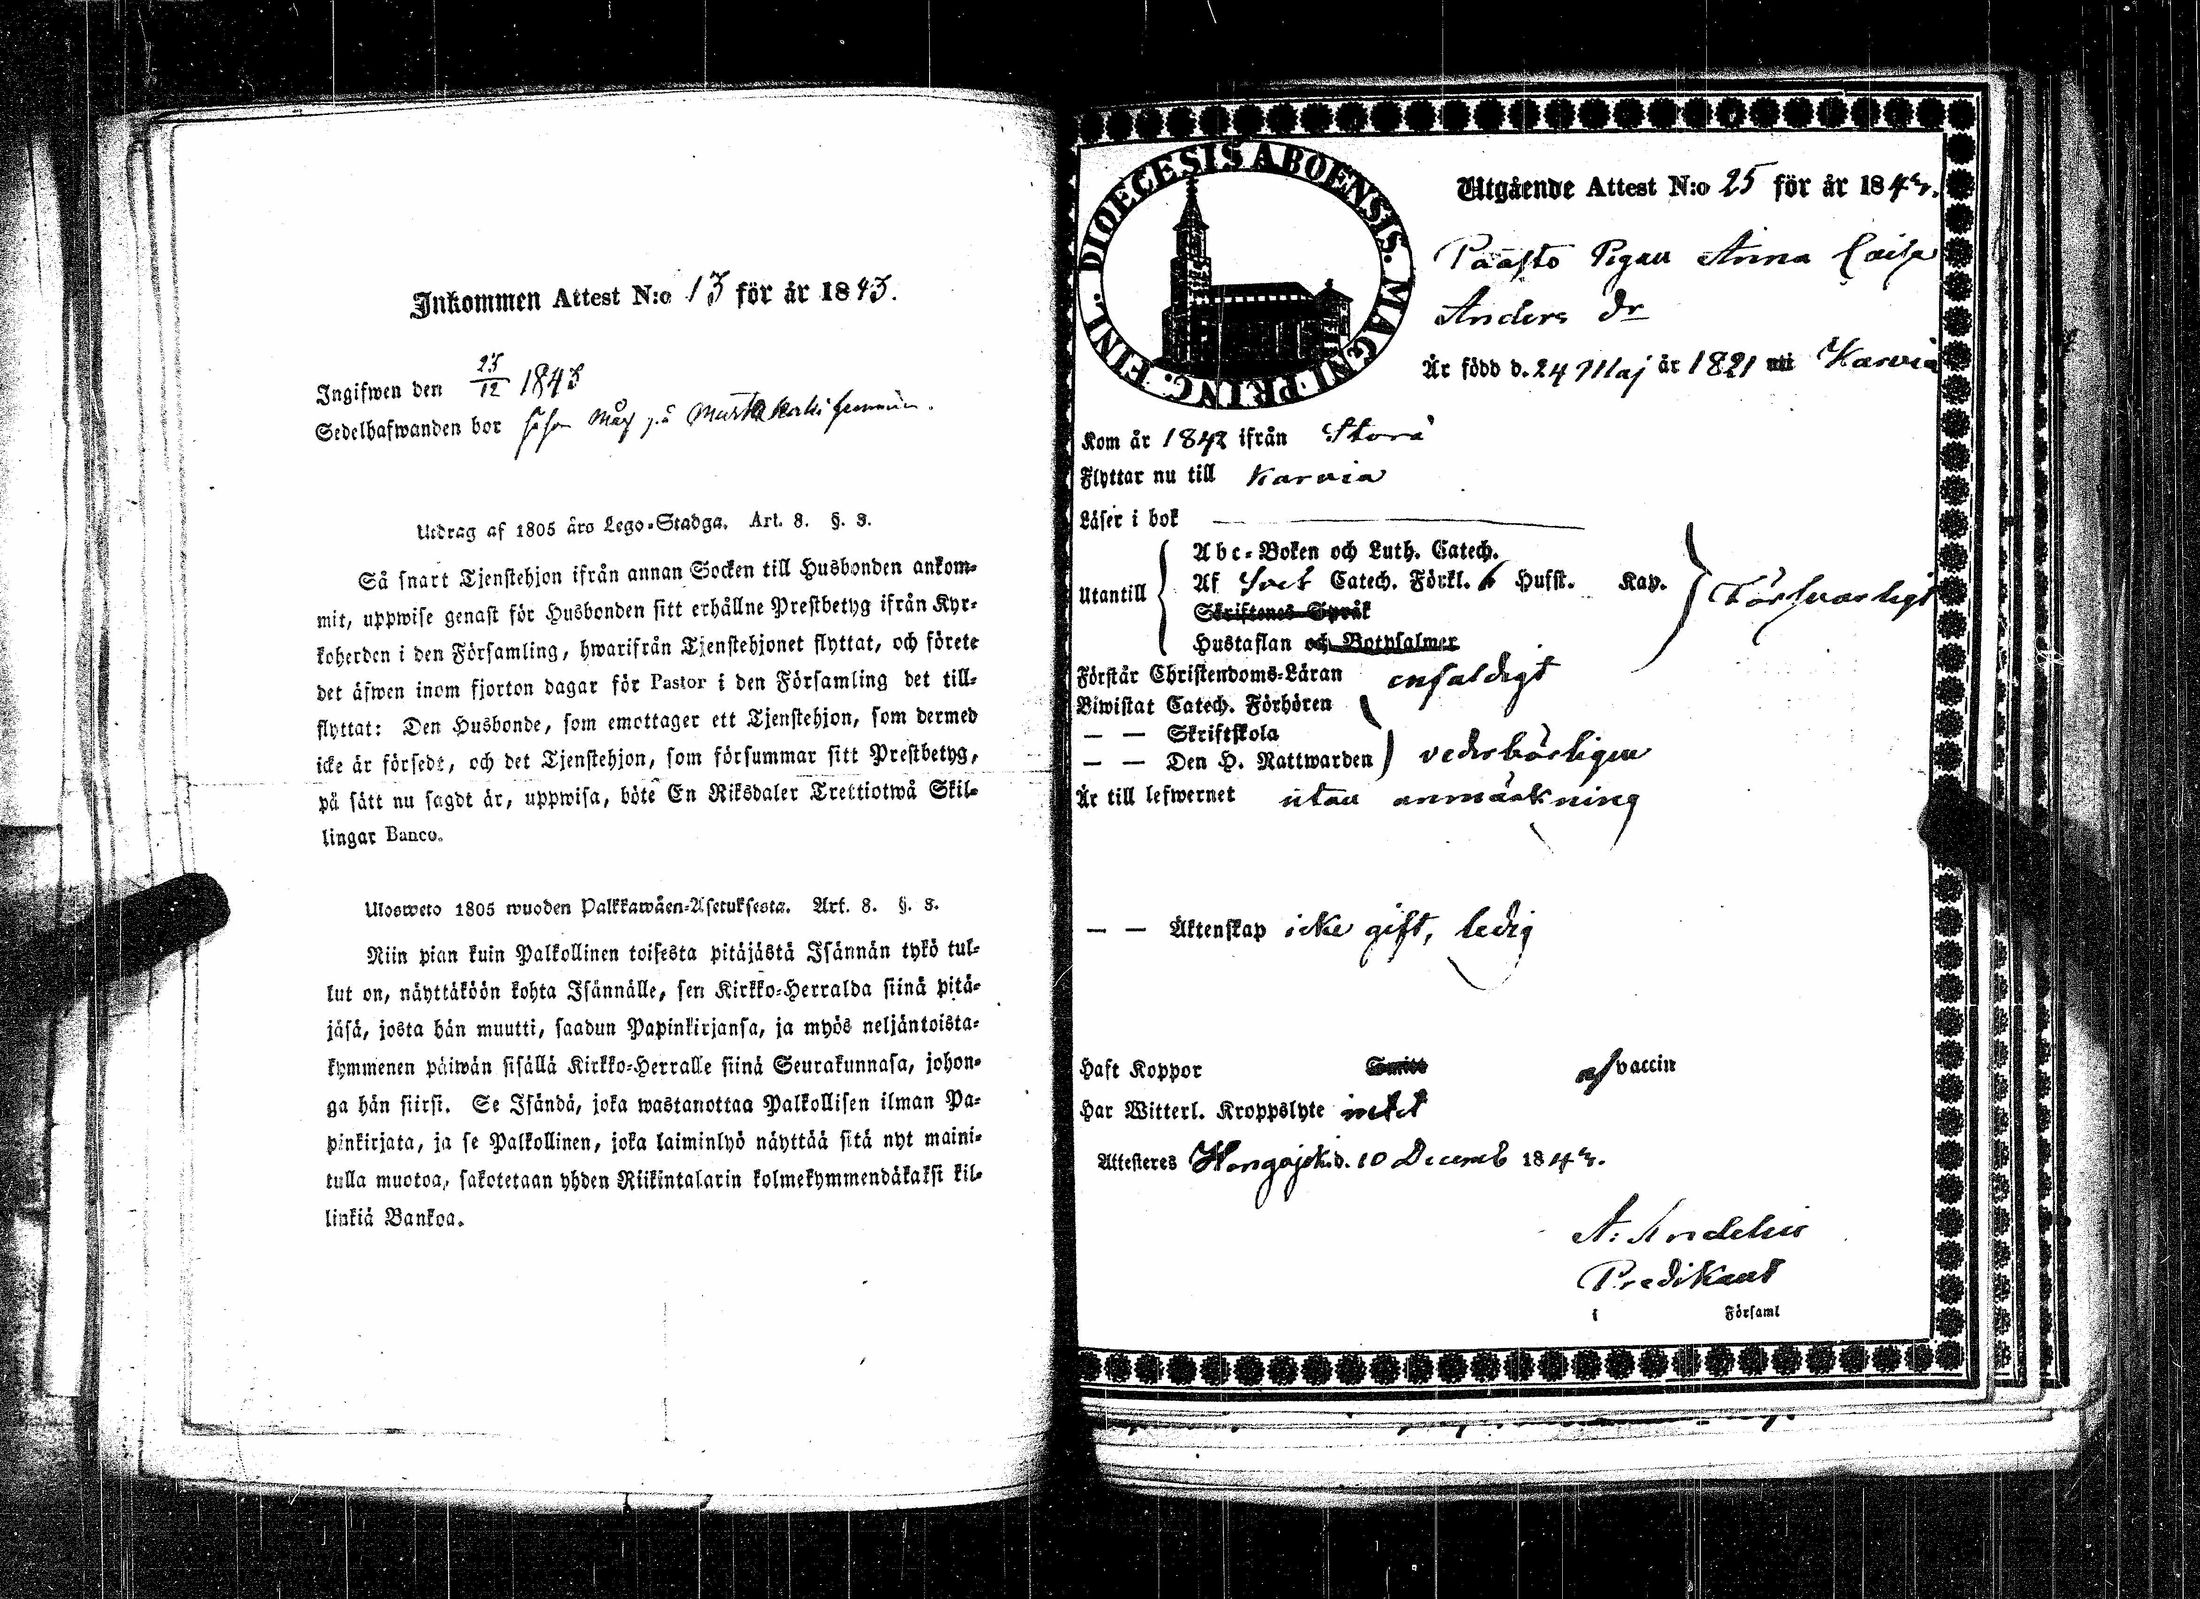 Inkommen Attest N:o 13 för år 1843.
Ingifwen den 25/12 1843
Sedelhafwanden bor
Utdrag af 1805 års Lego-Stadga. Art. 8. §. 8.
Så snart Tjenstehjon ifrån annan Socken till Husbonden ankom-
mit, uppwise genast för Husbonden sitt erhållne Prestbetyg ifrån Kyr-
koherden i den Församling, hwarifrån Tjenstehjonet flyttat, och förete
det äfwen inom fjorton dagar för Pastor i den Församling det till-
flyttat: Den Husbonde, som emottager ett Tjenstehjon, som dermed
icke är försedt, och det Tjenstehjon, som försummar sitt Prestbetyg,
på sätt nu sagdt är, uppwisa, böte En Riksdaler Trettiotwå Skil-
lingar Banco.
Ulosweto 1805 wuoden Palkkawäen-Asetuksesta. Art. 8. §. 8.
Niin pian kuin Palkollinen toisesta pitäjästä Isännän tykö tul-
lut on, näyttäköön kohta Isännälle, sen Kirkko-Herralda siinä pitä-
jäsä, josta hän muutti, saadun Papinkirjansa, ja myös neljäntoista-
kymmenen päiwän sisällä Kirkko-Herralle siinä Seurakunnasa, johon-
ga hän siirsi. Se Isändä, joka wastanottaa Palkollisen ilman Pa-
pinkirjata, ja se Palkollinen, joka laiminlyö näyttää sitä nyt maini-
tulla muotoa, sakotetaan yhden Riikintalarin kolmekymmendäkaksi kil-
linkiä Bankoa.
DIOECESIS ABOENSIS. MAGNI PRINC. FINL.
Utgående Attest N:o 25 för år 1843.
Påasto Pigan Anna Caisa
Anders dr
Är född d. 24 Maj år 1821 uti Karvia
Kom år 1842 ifrån Storå
Flyttar nu till Karvia
Läser i bok
Abc-Boken och Luth. Catech.
Utantill Af Sveb Catech. Förkl. 6 Hufst. Kap. Försvarligt
Skriftenes Språk
Hustaflan och Botpsalmer
Förstår Christendoms-Läran enfaldigt
Biwistat Catech. Förhören
— — Skriftskola
— — Den H. Nattwarden vederbörligen
Är till lefwernet utan anmärkning
— — Äktenskap icke gift, ledig
Haft Koppor Smitt af vaccin
Har Witterl. Kroppslyte intet
Attesteres Hongojoki d. 10 Decemb 1843.
A:
Predikant
i Församl